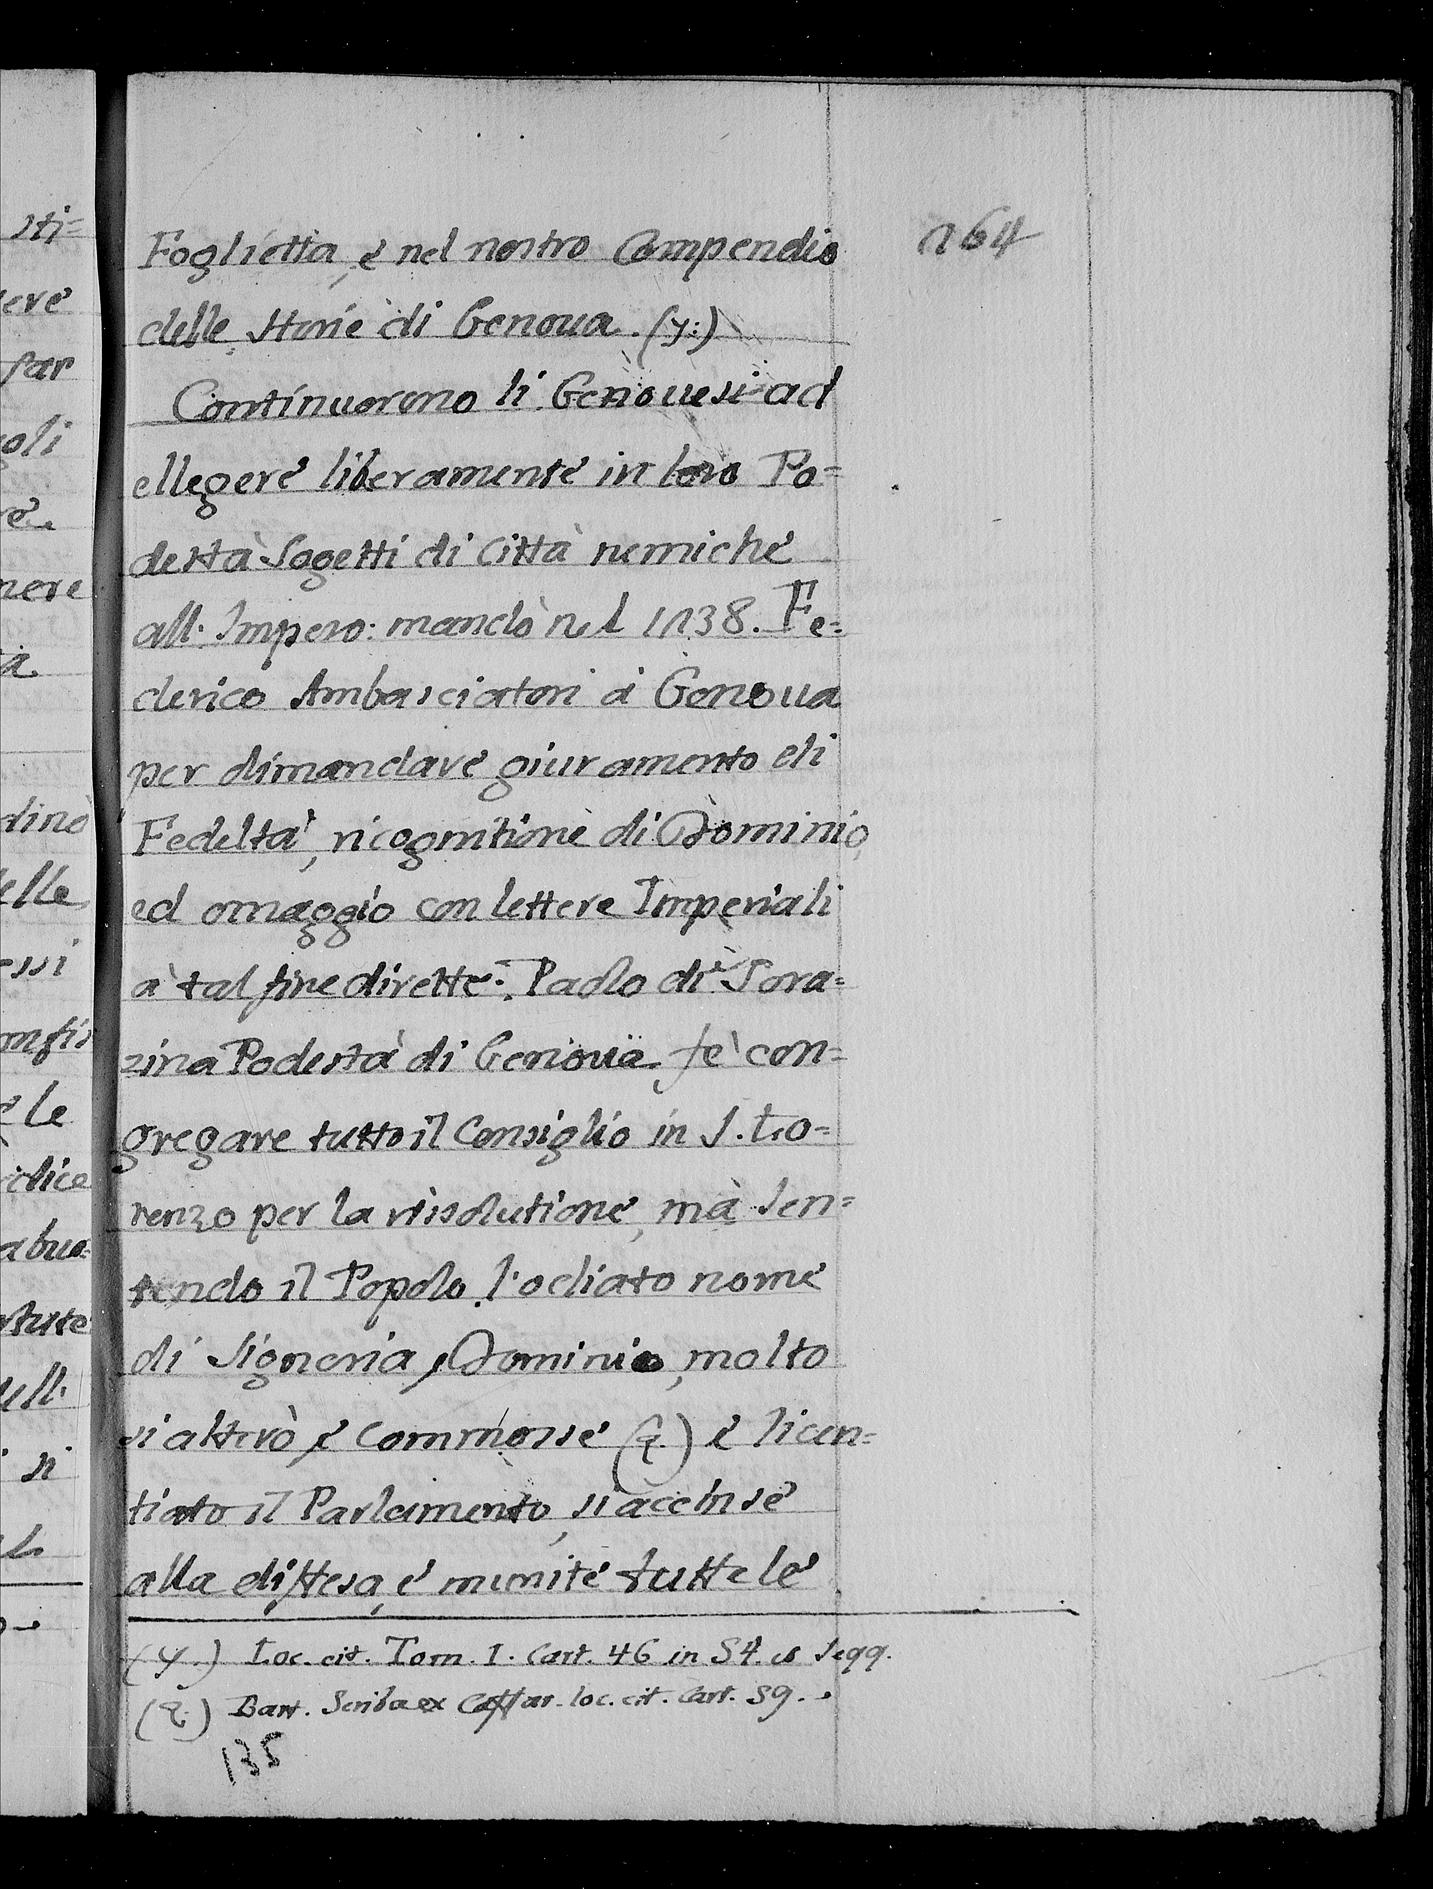 sti=
ere
far
oli
re.
nere
ta
dinò
elle
ssi
onfis
e le
dice
abuo=
stute
dell'
si
264
Foglietta, e nel nostro Compendio
delle storie di Genoua. (y:)
Continuorono li Genouesi ad
ellegere liberamente in loro Po=
destà Sogetti di Città nemiche
all' Impero: mandò nel 1238. Fe=
derico Ambasciatori à Genoua
per dimandare giuramento di
Fedeltà, ricognitione di Dominio,
ed omaggio con lettere Imperiali
à tal fine dirette. Paolo di Sora=
zina Podestà di Genoua fè con=
gregare tutto il Consiglio in S. Lo=
renzo per la risolutione, mà sen=
tendo il Popolo l'odiato nome
di Signoria, e Dominio, molto
si alterò, e commosse (z.) e licen=
tiato il Parlamento, si accinse
alla diffesa, e munite tutte le
(y.) Loc. cit. Tom. I. Cart. 46 in 54. & seqq.
(z.) Bart. Scriba ex Caffar. loc. cit. Cart. 59.
135